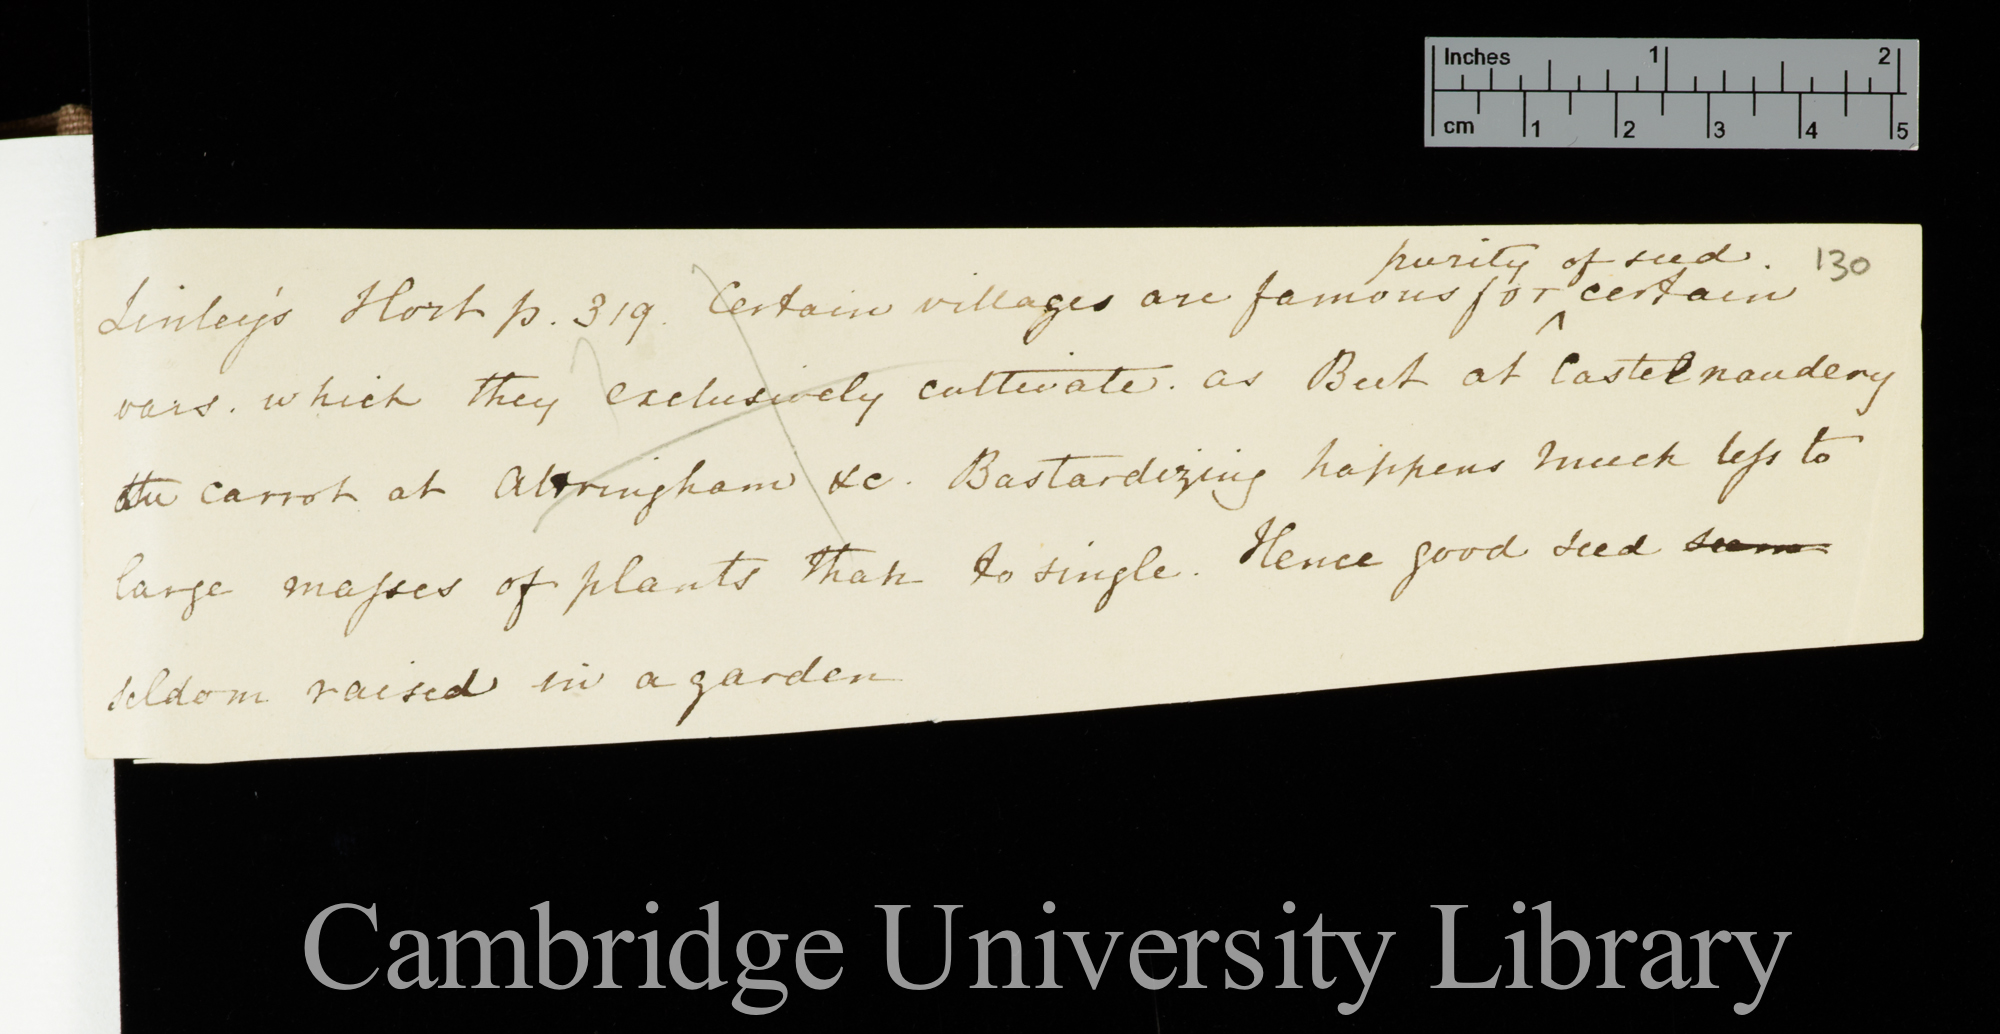 Inches 1 2
cm 1 2 3 4 5
130
purity of seed.
Linley's Hort p. 319. Certain villages are famous for ^ certain
vars. which they exclusively cultivate. as Beet at Castelnaudery
the carrot at Altringham &c. Bastardizing happens much less to
large masses of plants than to single. Hence good seed seem
seldom raised in a garden
Cambridge University Library